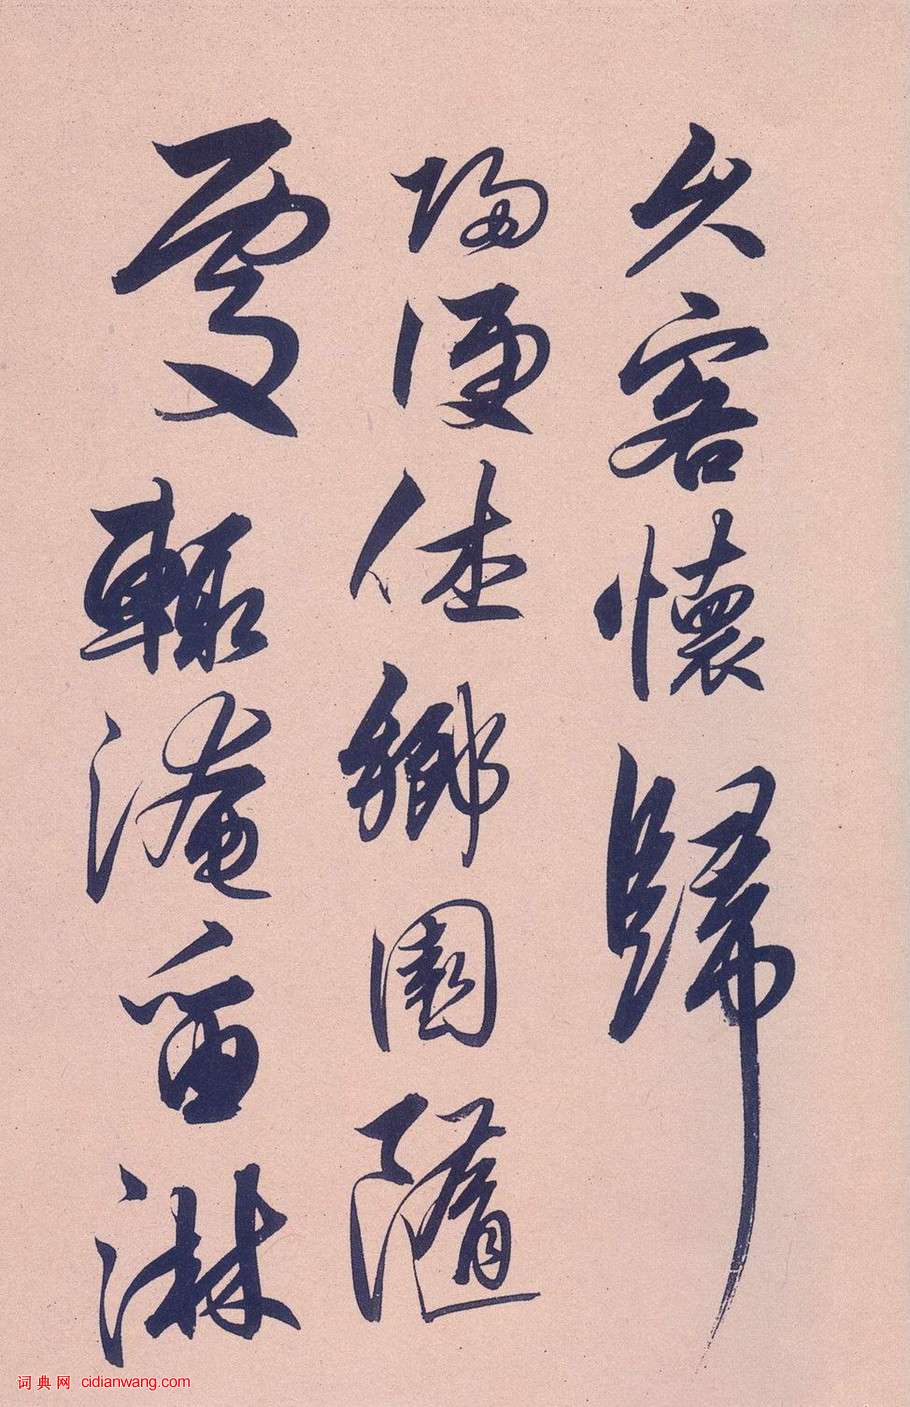 久客懷歸
歸便住鄉園隨
處輒淹留淋
词典网 cidianwang.com